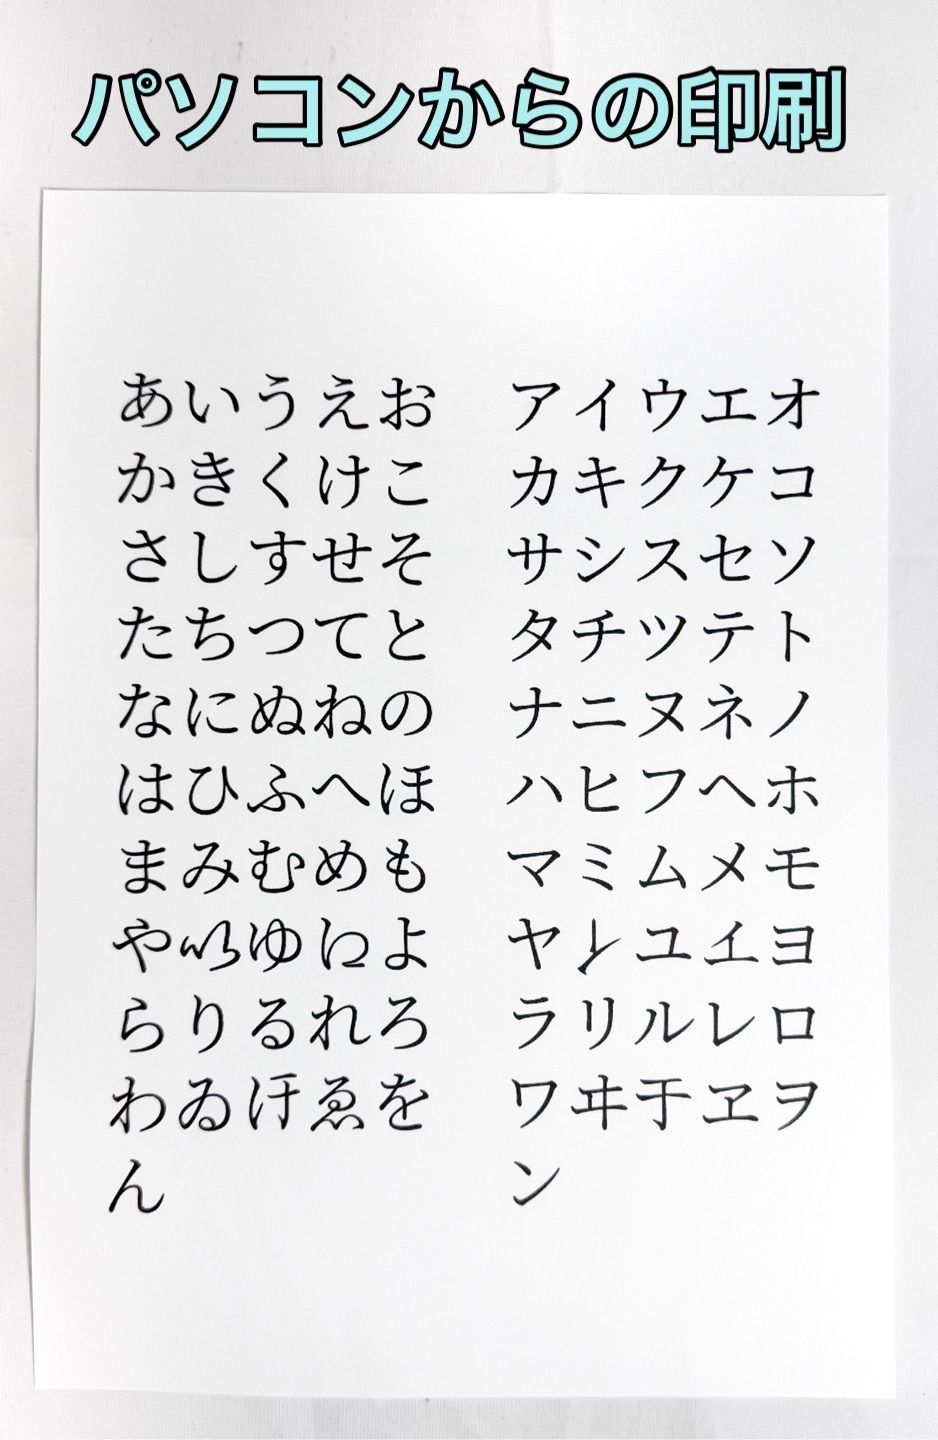 パソコンからの印刷
あいうえお　アイウエオ
かきくけこ　カキクケコ
さしすせそ　サシスセソ
たちつてと　タチツテト
なにぬねの　ナニヌネノ
はひふへほ　ハヒフヘホ
まみむめも　マミムメモ
や𛀆ゆ𛀁よ　ヤ𛄠ユ𛄡ヨ
らりるれろ　ラリルレロ
わゐ𛄟ゑを　ワヰ𛄢ヱヲ
ん　ン